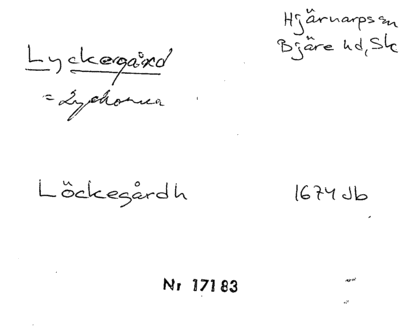 Hjärnarps sn
Bjäre hd, Sk
Lyckergård
=
Löckegårdh 1674 Jb
Nr 17183